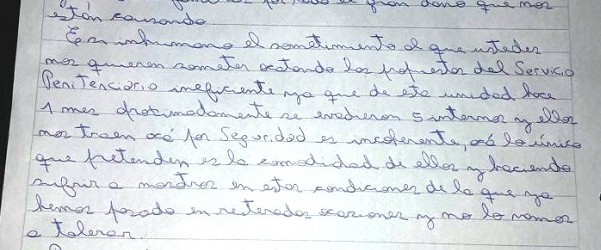 por todo el gran daño que nos
están causando.
Es inhumano el sometimiento al que ustedes
nos quieren someter acatando las propuestas del Servicio
Penitenciario ineficiente ya que de esta unidad hace
1 mes aproximadamente se evadieron 5 internos y ellos
nos traen acá por seguridad es incoherente, acá lo único
que pretenden es la comodidad de ellos y haciendo
sufrir a nosotros en estas condiciones de la que ya
hemos pasado en reiteradas ocasiones y no lo vamos
a tolerar.